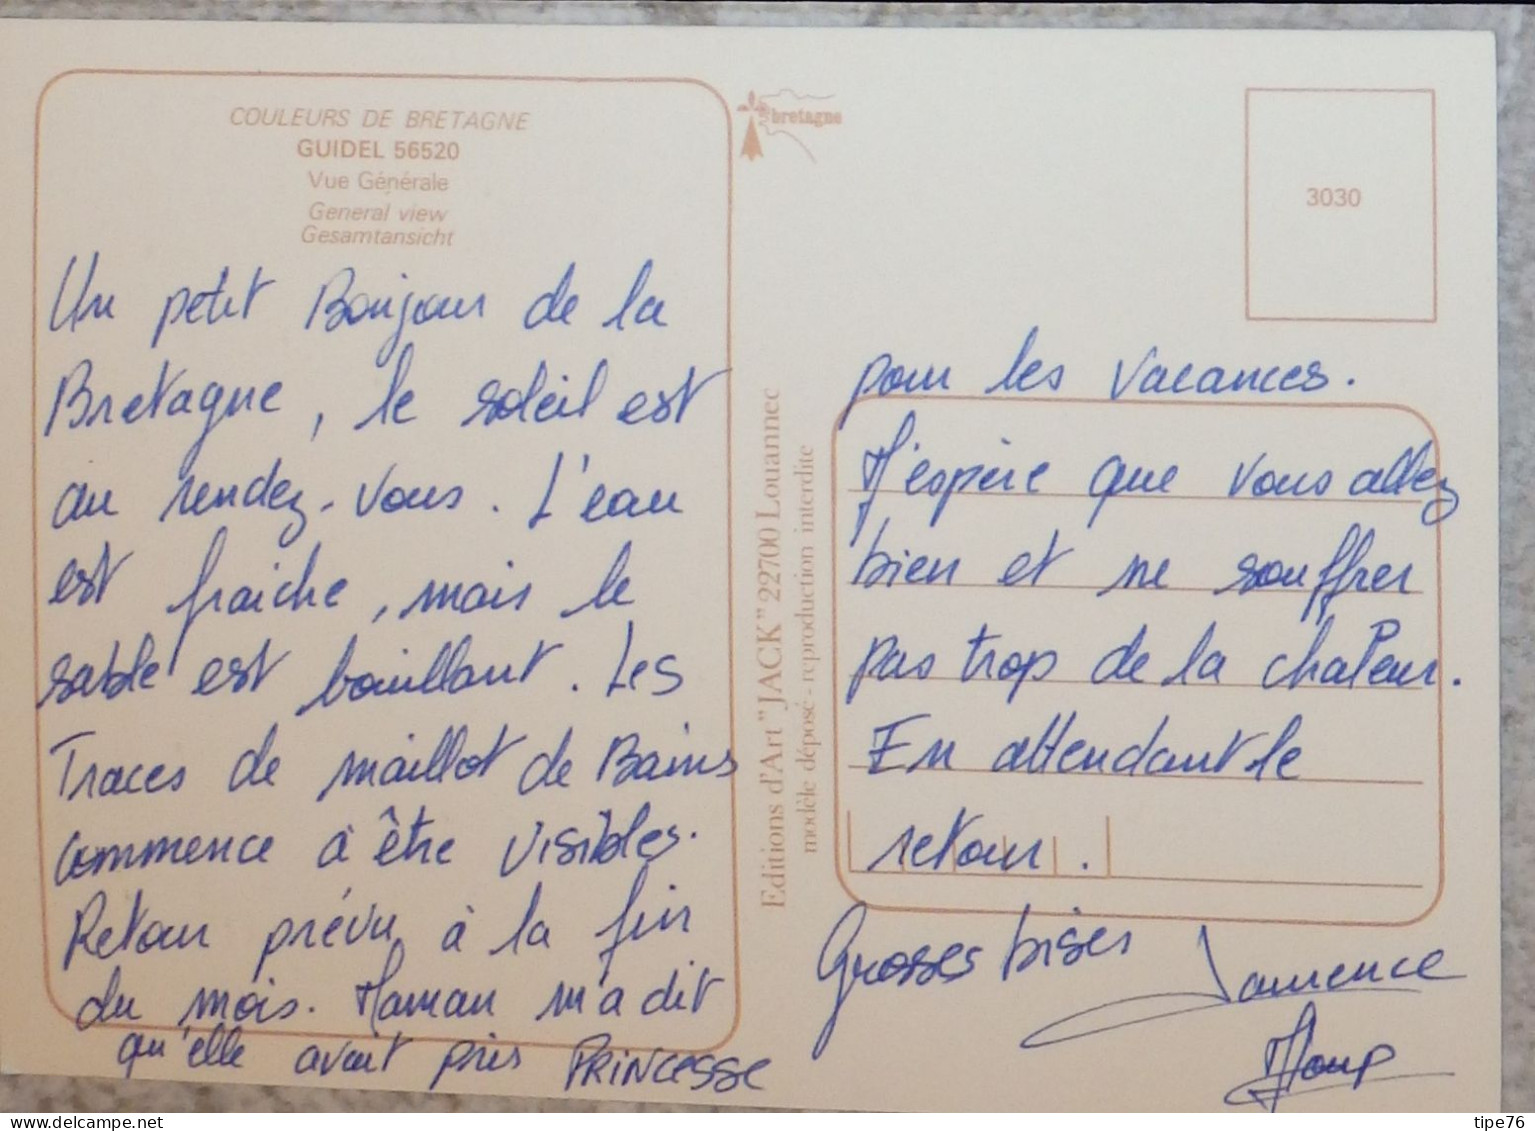 COULEURS DE BRETAGNE
GUIDEL 56520
Vue Générale
General view
Gesamtansicht
Un petit Bonjour de la
Bretagne, le soleil est
au rendez-vous. L'eau
est fraiche, mais le
sable est bouillant. Les
Traces de maillot de Bains
commence à être visibles.
Retour prévu à la fin
du mois. Maman m'a dit
qu'elle avait pris PRINCESSE
bretagne
Editions d'Art "JACK" 22700 Louannec
modèle déposé - reproduction interdite
3030
pour les vacances.
J'espère que vous allez
bien et ne souffrer
pas trop de la chaleur.
En attendant le
retour.
Grosses bises Laurence
delcampe.net
tipe76